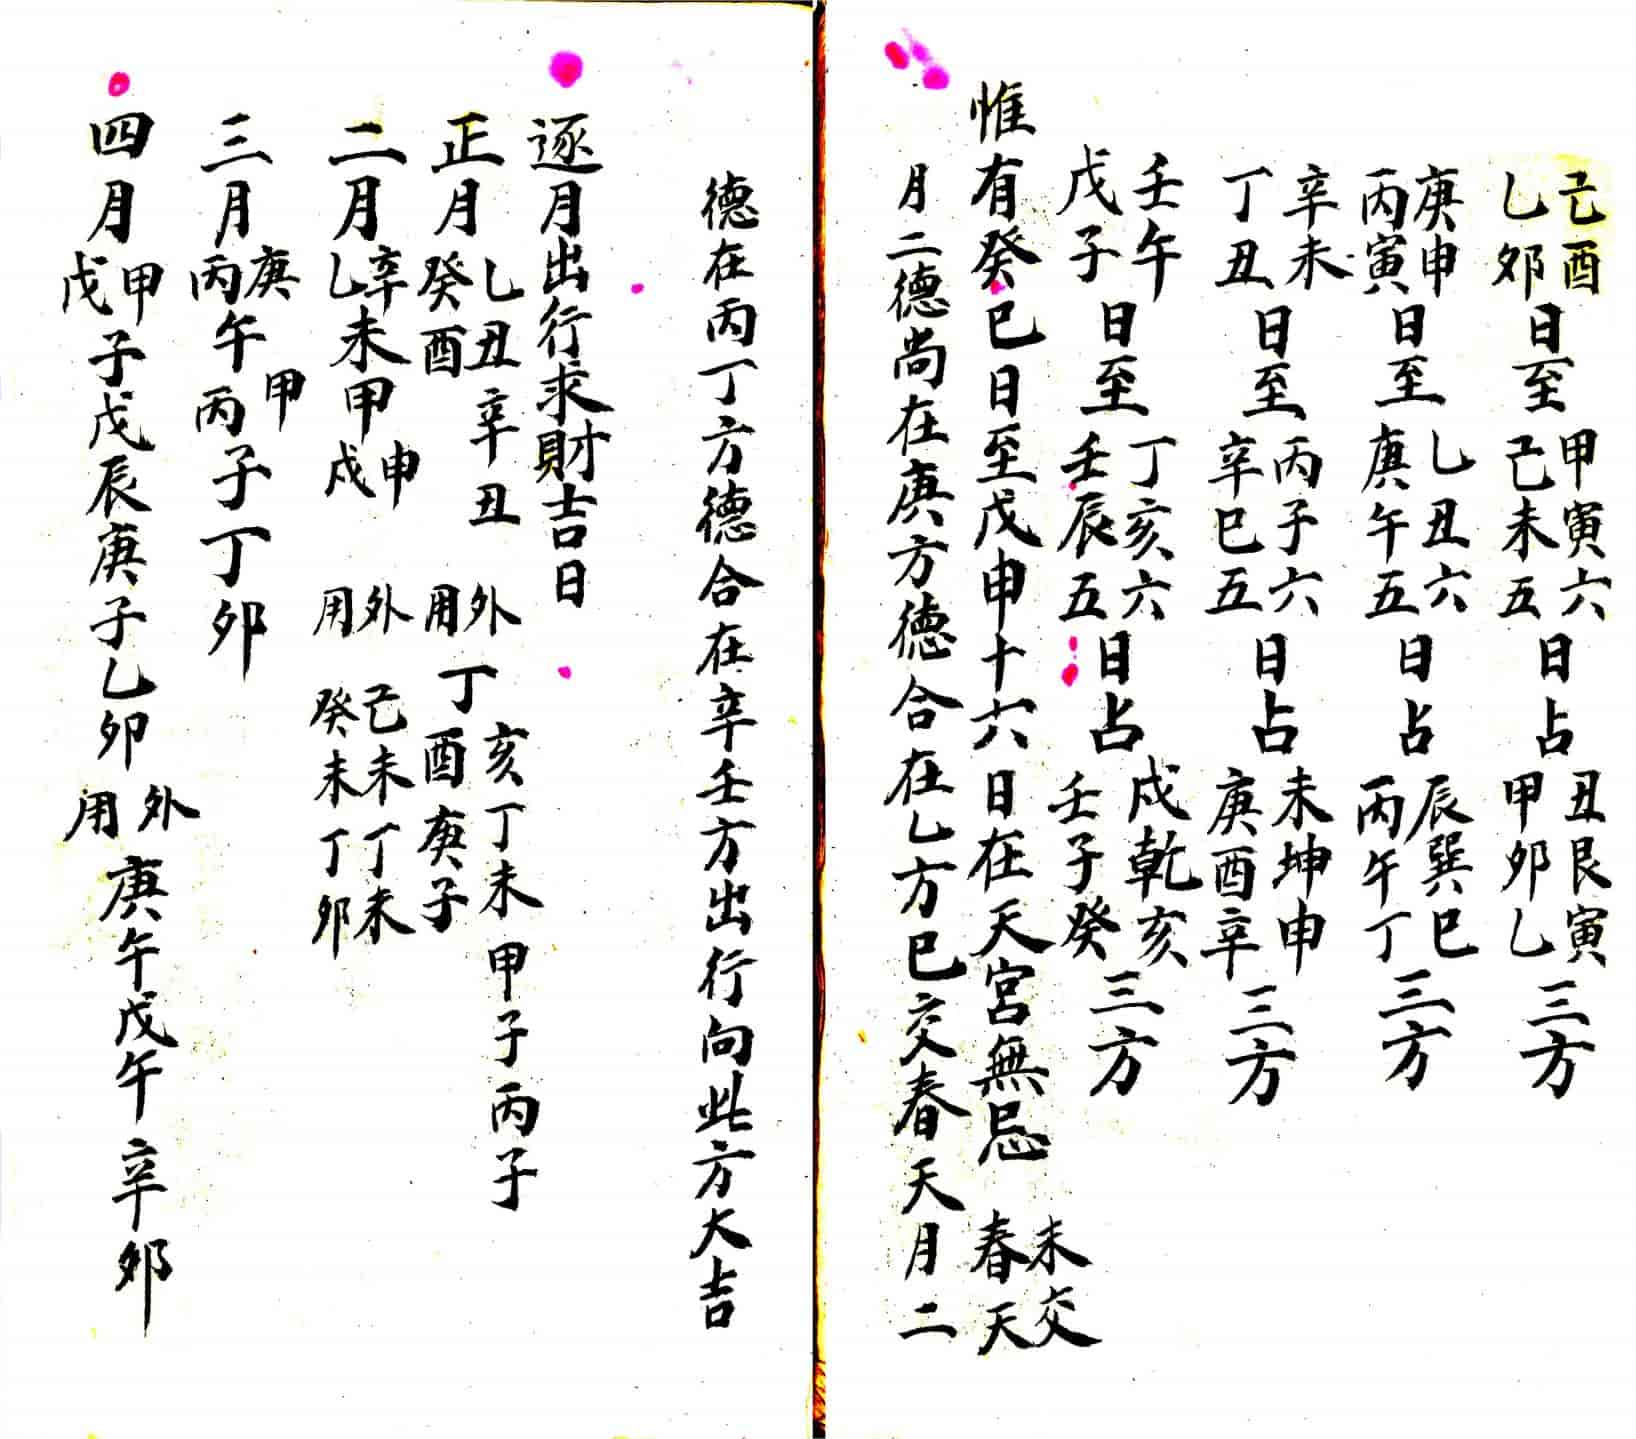 己酉乙卯日至甲寅六己未五日占丑艮寅甲卯乙三方
庚申丙寅日至乙丑六庚午五日占辰巽巳丙午丁三方
辛未丁丑日至丙子六辛巳五日占未坤申庚酉辛三方
壬午戊子日至丁亥六壬辰五日占戌乾亥壬子癸三方
惟有癸巳日至戊申十六日在天宮無忌未交春天
月二德尚在庚方德合在乙方巳交春天月二
德在丙丁方德合在辛壬方出行向此方大吉
逐月出行求財吉日
正月乙丑癸酉辛丑外用丁亥丁未甲子丙子酉庚子
二月辛乙未甲申戌外用己未丁未癸未丁卯
三月庚丙午甲丙子丁卯
四月甲戊子戊辰庚子乙卯外用庚午戊午辛卯